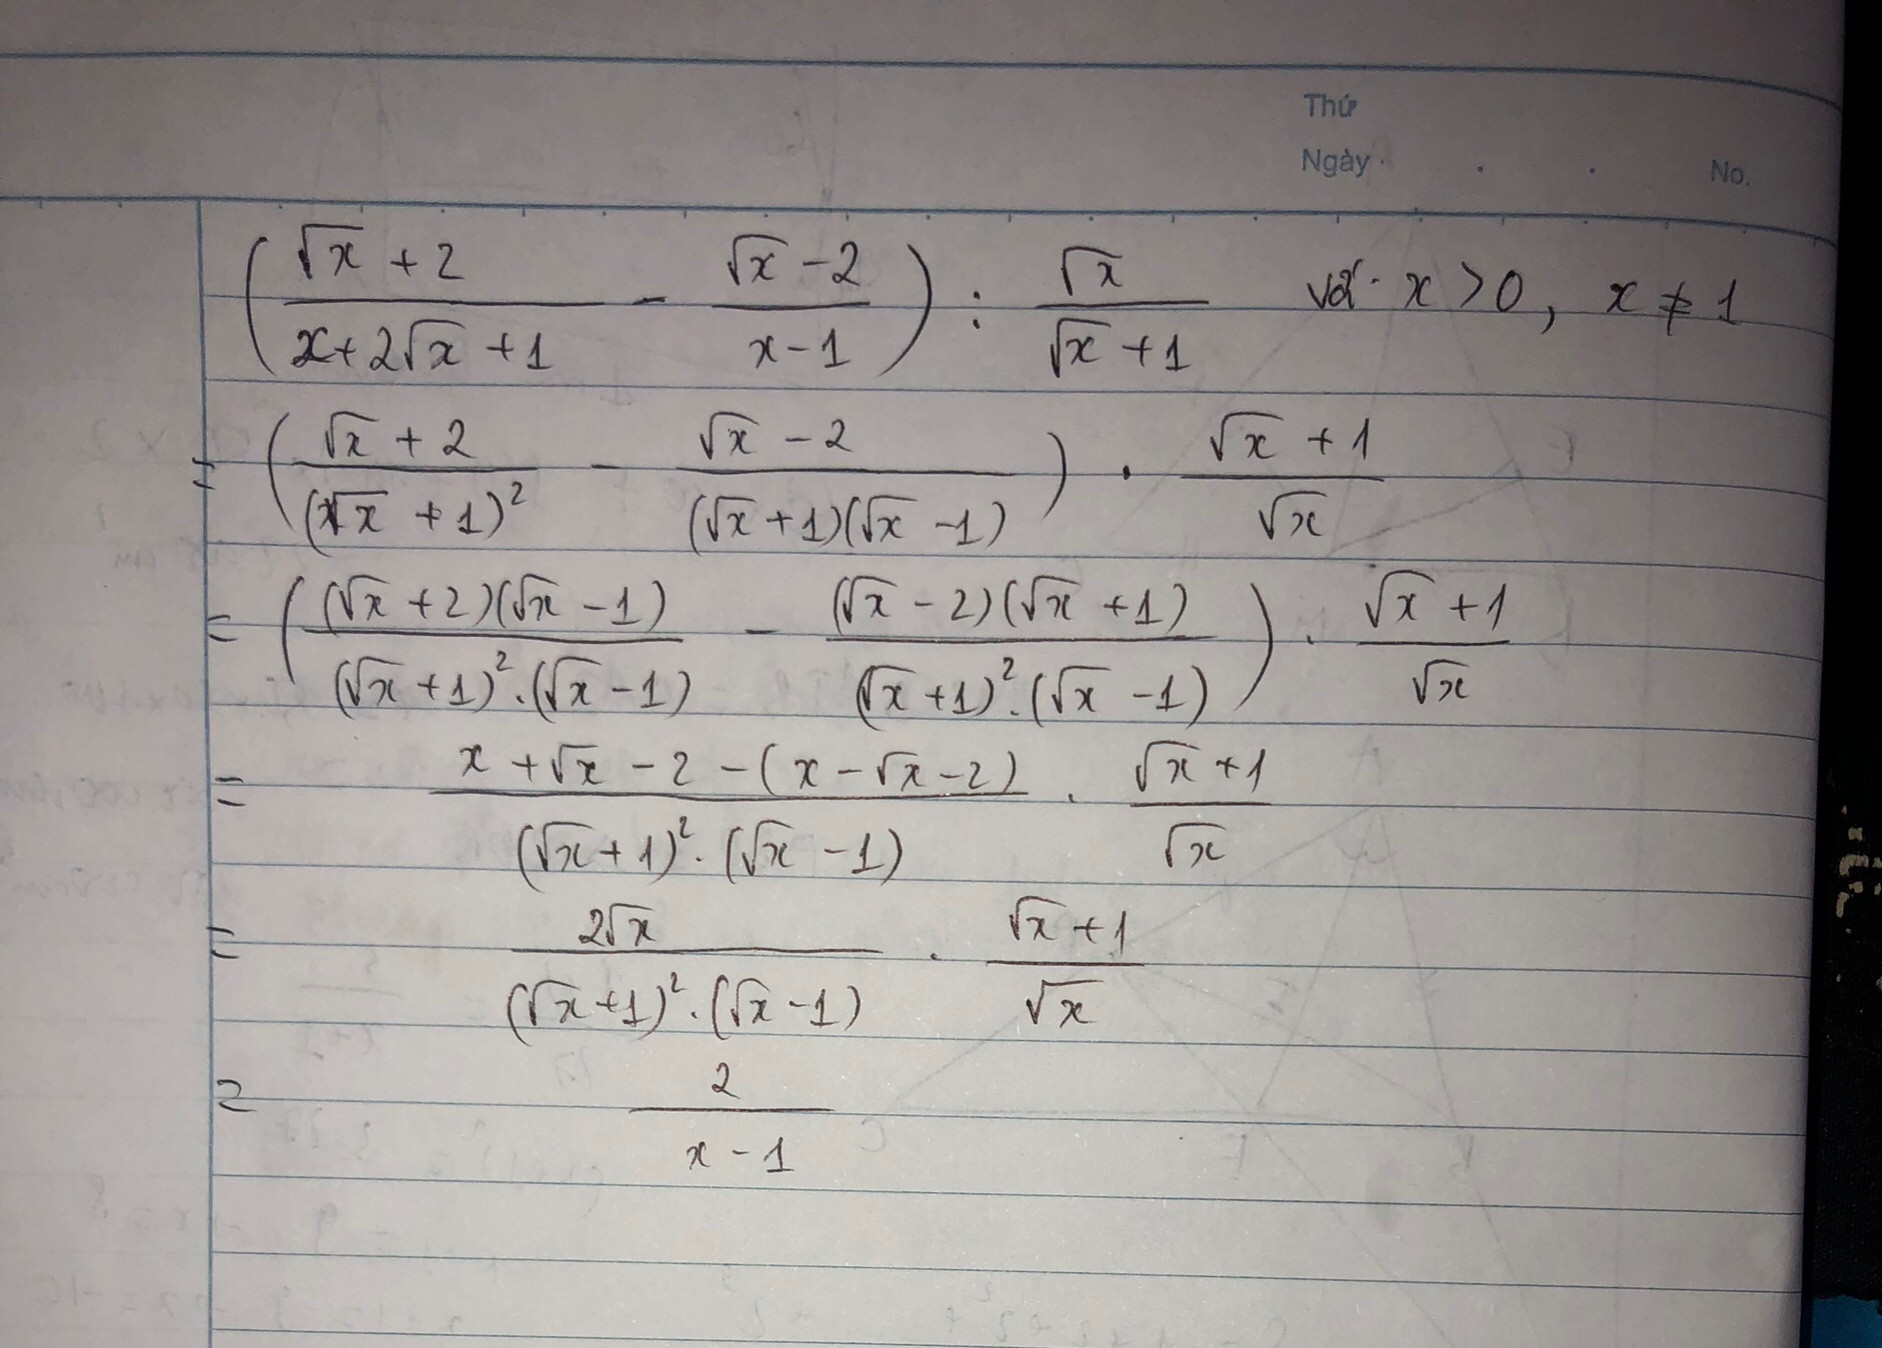 Thứ
Ngày . . . No.
( (√x + 2)/(x + 2√x + 1) - (√x - 2)/(x - 1) ) : √x/(√x + 1) với x > 0, x ≠ 1
= ( (√x + 2)/(√x + 1)² - (√x - 2)/((√x + 1)(√x - 1)) ) . (√x + 1)/√x
= ( ((√x + 2)(√x - 1))/((√x + 1)².(√x - 1)) - ((√x - 2)(√x + 1))/((√x + 1)².(√x - 1)) ) . (√x + 1)/√x
= (x + √x - 2 - (x - √x - 2))/((√x + 1)².(√x - 1)) . (√x + 1)/√x
= 2√x/((√x + 1)².(√x - 1)) . (√x + 1)/√x
= 2/(x - 1)